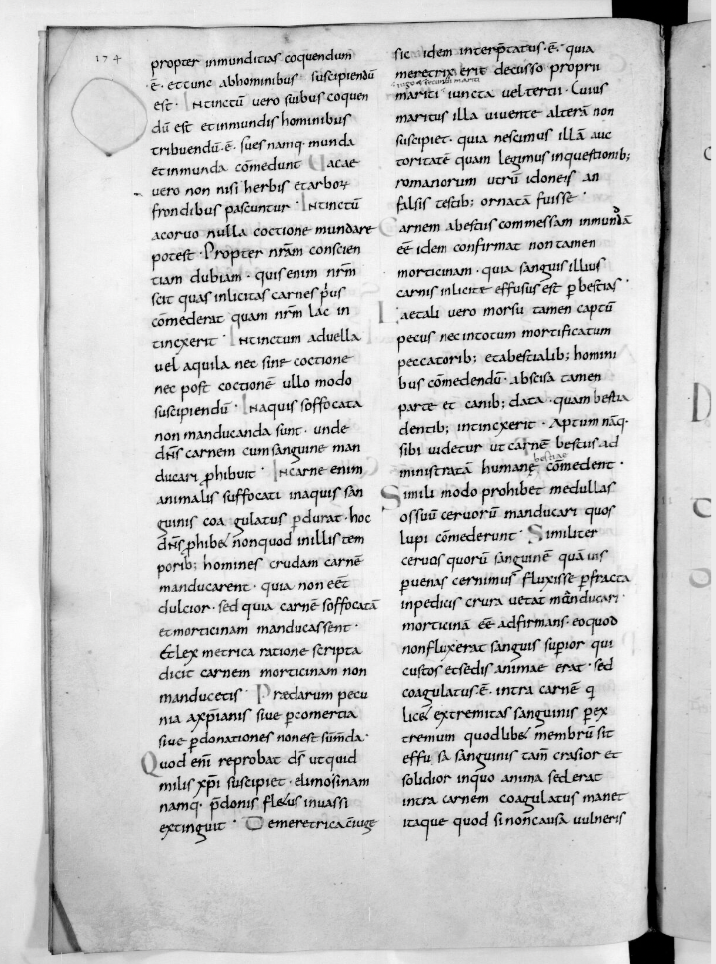 174
propter inmunditias coquendum
ē· et tunc abhominibus suscipiendū
est· Intinctū vero suibus coquen
dū est et inmundis hominibus
tribuendū·ē· sues namq· munda
et inmunda comedunt Vacae
vero non nisi herbis et arboꝝ
frondibus pascuntur· Intinctū
acoruo nulla coctione mundare
potest· Propter nr̄am conscien
tiam dubiam· quis enim nr̄m
scit quas inlicitas carnes p̄us
comederat quam nr̄m lac in
tincxerit· Intinctum a duella
vel aquila nec sine coctione
nec post coctionē ullo modo
suscipiendū· In aquis soffocata
non manducanda sunt· unde
dn̄s carnem cum sanguine man
ducari ꝓhibuit· In carne enim
animalis suffocati in aquis san
guinis coa gulatus ꝑdurat· hoc
dn̄s ꝓhibet non quod in illis tem
porib; homines crudam carnē
manducarent· quia non eēt
dulcior· sed quia carnē soffocatā
et morticinam manducassent·
Et lex metrica ratione scripta
dicit carnem morticinam non
manducetis· Praedarum pecu
nia a xp̄ianis siue ꝑ comertia
siue ꝑ donationes non est sum̄da·
Quod enī reprobat dš ut quid
milis xp̄i suscipiet· elimosinam
namq· p̄donis fletus inuassi
extinguit· De meretrica c̄iuge
sic idem interp̄tatus·ē· quia
meretrix erit decusso proprii
mariti iuncta vel tertii· Cuius
maritus illa viuente alterā non
suscipiet· quia nescimus illā auc
toritatē quam legimus in questionib;
romanorum utrū idoneis an
falsis testib; ornata fuisse·
Carnem abestiis commessam inmundā
eē idem confirmat non tamen
morticinam· quia sanguis illius
carnis inlicite effusus est ꝑ bestias·
Laetali vero morsu tamen captū
pecus nec in totum mortificatum
peccatorib; et abestialib; homini
bus comedendū· abscisa tamen
parte et canib; data· quam bestia
dentib; intincxerit· Aptum nāq·
sibi videtur ut carnē bestiis ad
bestiae
ministratā humanę comedent·
Simili modo prohibet medullas
ossuū ceruorū manducari quos
lupi comederunt· Similiter
ceruos quorū sanguinē quāuis
paenas cernimus fluxisse ꝑfracta
in pedicis crura vetat manducari·
morticinā eē adfirmans· eo quod
non fluxerat sanguis sup̄ior qui
custos et sedis animae erat· sed
coagulatus·ē· intra carnē q̄
licet extremitas sanguinis ꝑ ex
tremum quodlibet membrū sit
effu sa sanguinis tam̄ crasior et
solidior in quo anima sed erat
intra carnem coagulatus manet
itaque quod si non causa vulneris